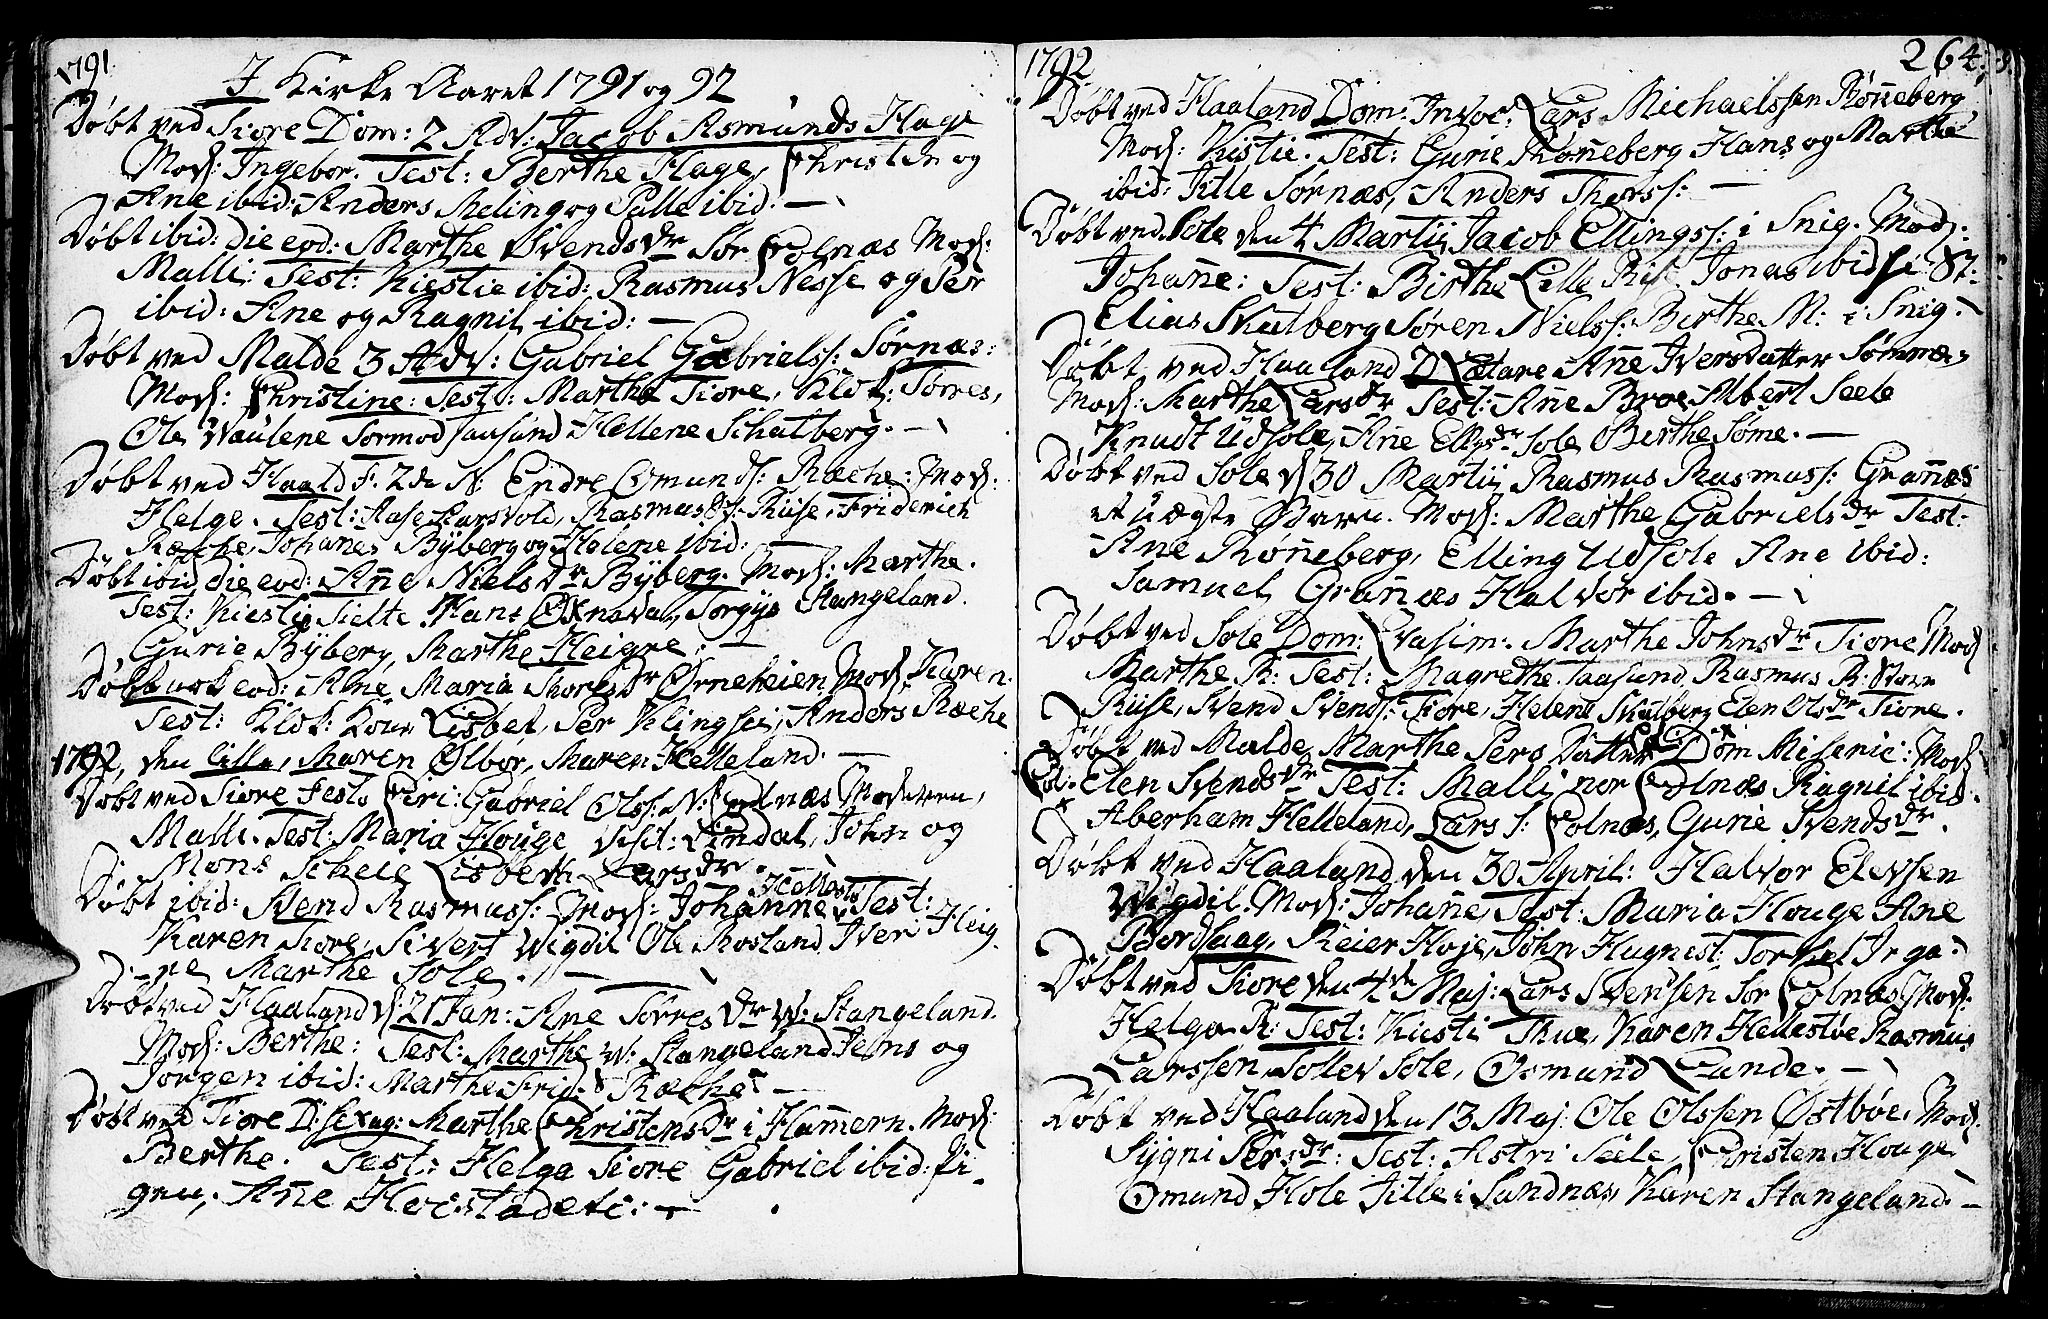 1791.
I Kirke Aaret 1791 og 92
Døbt ved Tiore Dom: 2 Adv: Jacob Asmunds Hage
Mod: Ingebor. Test: Berthe Hage, Christen og
Ane ibid: Anders Meling og Palle ibid. —
Døbt ibid: die eod: Marthe Svends dr Sør Colnæs Mod:
Malli: Test: Kiestie ibid: Rasmus Nesse og Per
ibid: Ane og Ragnil ibid: —
Døbt ved Malde 3 Adv: Gabriel Gabrielss: Sørnæs:
Mod: Christine: Test: Marthe Tiore, Klok: Torres,
Ole Waulene Tormod Taasund Hellene Schatberg. —
Døbt ved Haald F. 2den N: Endre Omunds: Ræche: Mod:
Helge. Test: Aase Harsvold, Rasmus St: Riise, Friderich
Ræche, Johanes Byberg og Helene ibid: —
Døbt ibid die eod: Ane Niels dr Byberg. Mod: Marthe.
Test: Kiestie Sielte Hans Øxnevad, Torgys Stangeland.
Gurie Byberg, Marthe Heigre. —
Døbt eod: Ane Maria Thores dr Ørneheien Mod: Karen.
Test: Klok: Kone Lisbet, Per Klingsei, Anders Ræche
1792, den lille, Maren Ølbør, Maren Helleland. —
Døbt ved Tiore Festo Ciri: Gabriel Olss: N: Colnæs Moderen,
Malli. Test: Maria Houge Visit: Lindal, John og
Mons Scheie Lisbeth Lars dr.
Døbt ibid: Svend Rasmuss: Mod: Johanne Hellestø Test:
Karen Tiore, Sivert Vigdil Ole Rosland Iver Heig
re Marthe Sole. —
Døbt ved Haaland d: 21 Jan: Ane Torres dr W: Stangeland.
Mod: Berthe: Test: Marthe W: Stangeland Jens og
Jorgen ibid: Marthe Frid: S Ræche —
Døbt ved Tiore D: Sexag: Marthe Christens dr i Hamern. Mod:
Berthe. Test: Helga Tiore Gabriel ibid: Pi-
gen, Ane Heistadeti: —
1792
264.
Døbt ved Haaland Dom: Invoc: Lars Michaelssen Rønneberg
Mod: Kistie. Test: Gurie Rønneberg Hans og Marthe
ibid: Titte Sørnæs, Anders Thorss: —
Døbt ved Sole den 4 Martij Jacob Ellingss: i Snig. Mod:
Johane: Test: Birthe Lille Rise Jonas ibid i St:
Elias Skatberg Søren Nielss: Berthe M: i Snig.
Døbt ved Haaland D Lætare Ane Iversdatter Sømme,
Mod: Marthe Lars dr Test: Ane Broe Albert Seele
Knudt Udsole, Ane Ellgs dr Sole Berthe Søme. —
Døbt ved Sole d 30 Martij Rasmus Rasmuss: Granæs
et uægte Barn. Mod: Marthe Gabriels dr Test:
Ane Rønneberg, Elling Udsole Ane ibid:
Samuel Granæs Halvor ibid. —
Døbt ved Sole Dom: Qvasim: Marthe Johns dr Tiore Mod
Marthe R: Test: Magrethe Taasund Rasmus R: Store
Riise, Svend Svends: Tiore, Helene Skatberg Elen Ols dr Tiore.
Døbt ved Malde Marthe Pers Datter Dom Miseric: Mod
Elen Svends dr Test: Malli nor Colnæs Ragnil ibid.
Aberham Helleland, Lars s: Colnæs, Gurie Svends dr.
Døbt ved Haaland den 30 April: Halvor Elevsen
Wigdil. Mod: Johane, Test: Maria Houge Ane
Bordsaag, Reier Hoje, John Hugnest: Torkiel Irga:
Døbt ved Tiore den 4de Maj: Lars Svensen Sør Colnæs Mod:
Helga R: Test: Kusti Thue, Karen Hellestøe Rasmus
Larssen, Sollev Sole, Osmund Lunde. —
Døbt ved Haaland den 13 Maj: Ole Olssen Østbøe. Mod:
Sygni Pers dr: Test: Astri Seele, Christen Houge
Omund Hole Title i Sandnæs, Karen Stangeland. —